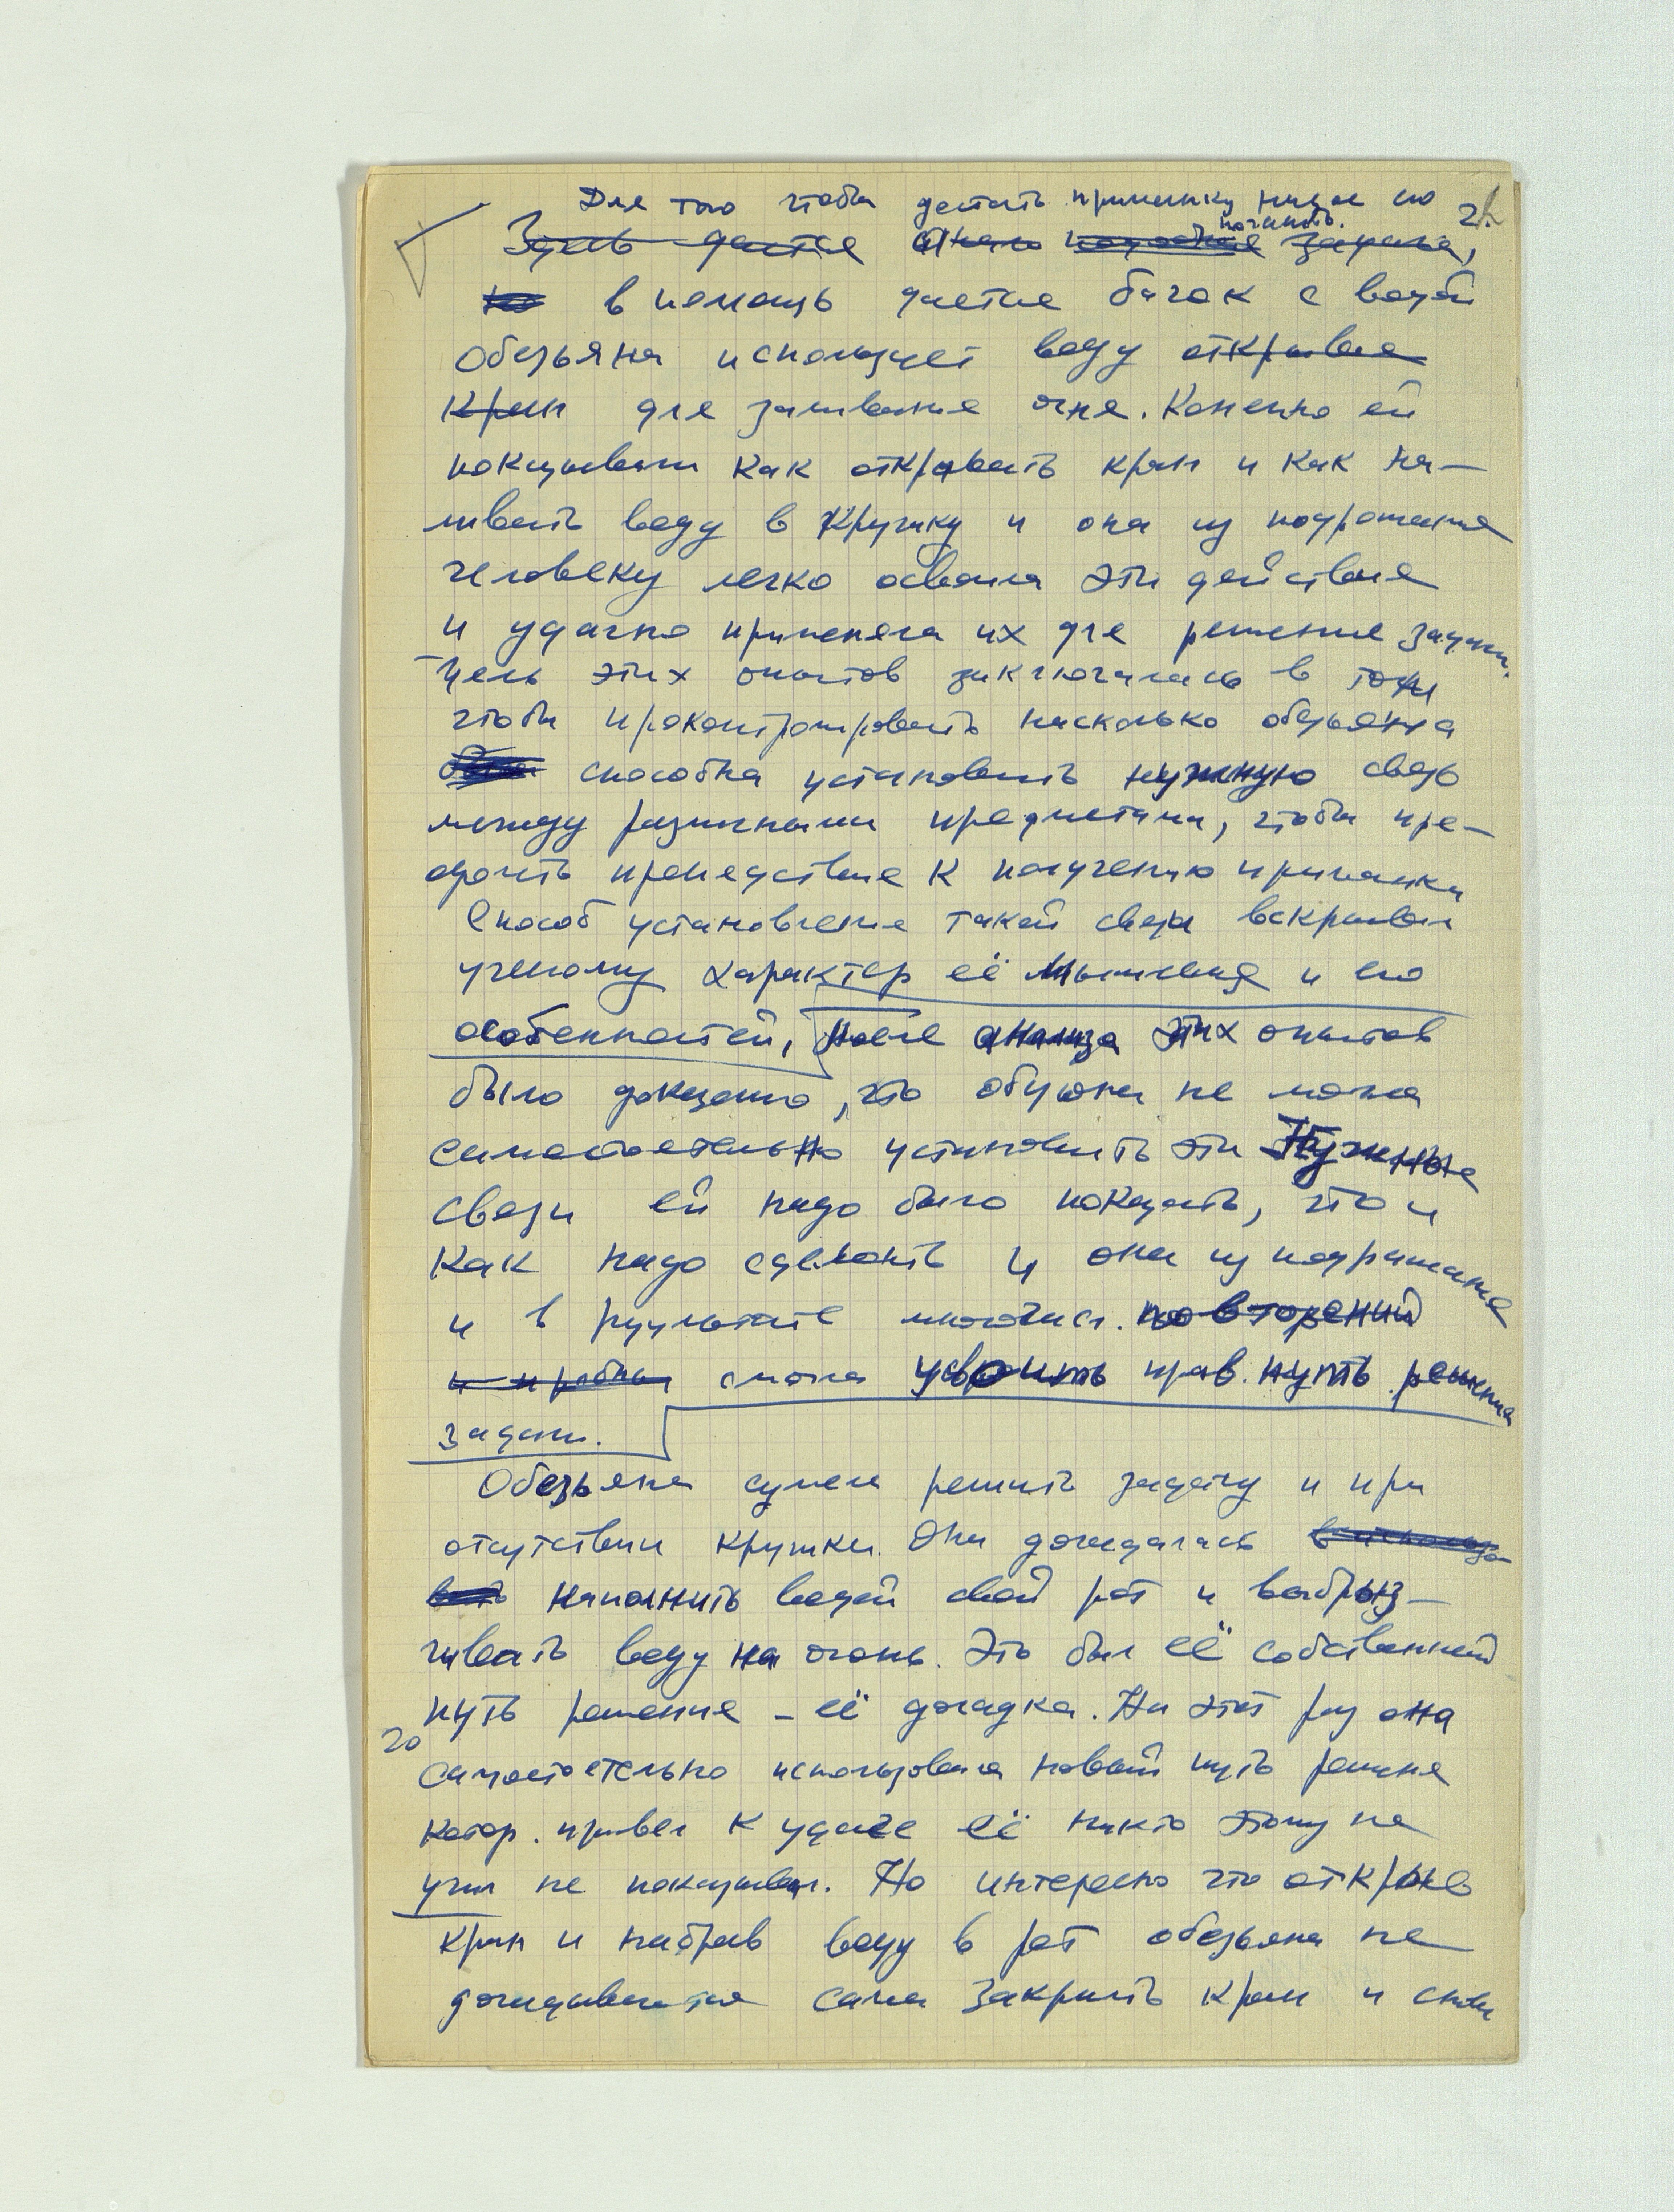 Для того чтобы достать приманку нужно его 2.
погасить.
Здесь дается задача,
в помощь дается бачок с водой
Обезьяна использует воду открывая
кран для заливания огня. Конечно ей
показывали как открывать кран и как на-
ливать воду в кружку и она из подражания
человеку легко освоила эти действия
и удачно применяла их для решения задачи.
Цель этих опытов заключалась в том
чтобы проконтролировать насколько обезьяна
способна установить нужную связь
между различными предметами, чтобы пре-
одолеть препятствие к получению приманки
Способ установления такой связи вскрывал
ученому характер её мышления и его
особенностей, После анализа этих опытов
было доказано, что обезьяна не могла
самостоятельно установить эти нужные
связи ей надо было показать, что и
как надо сделать и она из подражания
и в результате многочисл. повторений
и пробы смогла усвоить прав. путь решения
задачи.
Обезьяна сумела решить задачу и при
отсутствии кружки. Она догадалась в использо
вать наполнить водой свой рот и выбрыз-
гивать воду на огонь. Это был её собственный
путь решения – её догадка. На этот раз она
20
самостоятельно использовала новый путь решения
котор. привел к удаче её никто этому не
учил не показывал. Но интересно что открыв
кран и набрав воду в рот обезьяна не
догадывается сама закрыть кран и